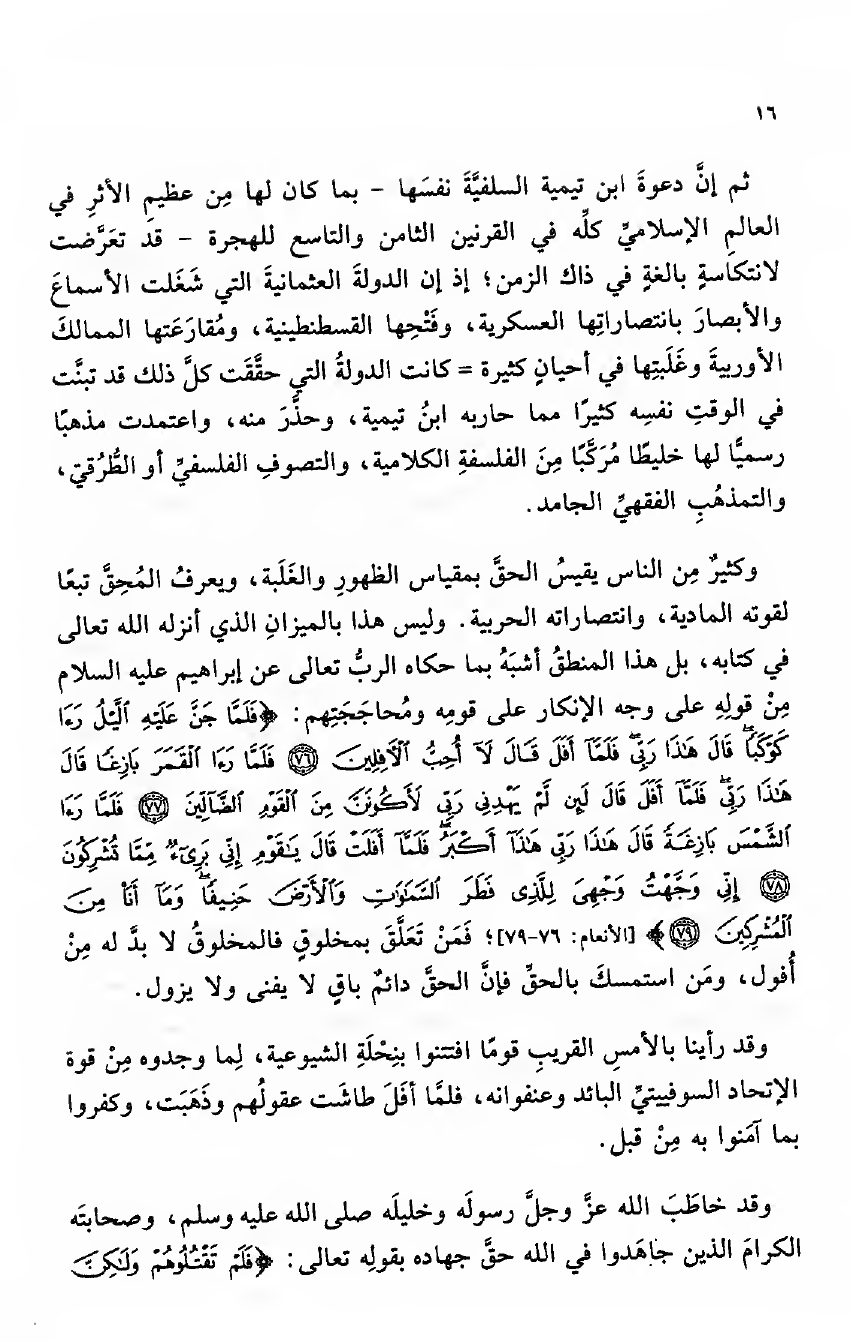 ١٦
ثم إنَّ دعوةَ ابن تيمية السلفيَّةَ نفسَها – بما كان لها مِن عظيمِ الأثرِ في
العالمِ الإسلاميِّ كلِّه في القرنين الثامن والتاسع للهجرة – قد تعَرَّضت
لانتكاسةٍ بالغةٍ في ذاك الزمن؛ إذ إن الدولةَ العثمانيةَ التي شَغَلت الأسماعَ
والأبصارَ بانتصاراتِها العسكرية، وفَتْحِها القسطنطينية، ومُقارَعَتها الممالكَ
الأوربيةَ وغَلَبتِها في أحيانٍ كثيرة = كانت الدولةُ التي حقَّقَت كلَّ ذلك قد تبنَّت
في الوقتِ نفسِه كثيرًا مما حاربه ابنُ تيمية، وحذَّرَ منه، واعتمدت مذهبًا
رسميًّا لها خليطًا مُرَكَّبًا مِنَ الفلسفةِ الكلامية، والتصوفِ الفلسفيِّ أو الطُّرُقيّ،
والتمذهُبِ الفقهيِّ الجامد.
وكثيرٌ مِن الناس يقيسُ الحقَّ بمقياس الظهورِ والغَلَبة، ويعرفُ المُحِقَّ تبعًا
لقوته المادية، وانتصاراته الحربية. وليس هذا بالميزانِ الذي أنزله الله تعالى
في كتابه، بل هذا المنطقُ أشبَهُ بما حكاه الربُّ تعالى عن إبراهيم عليه السلام
مِنْ قولِهِ على وجه الإنكار على قومِه ومُحاجَجَتِهم: ﴿فَلَمَّا جَنَّ عَلَيْهِ ٱلَّيْلُ رَءَا
كَوْكَبًاۖ قَالَ هَٰذَا رَبِّيۖ فَلَمَّآ أَفَلَ قَالَ لَآ أُحِبُّ ٱلْأَفِلِينَ ﴿٧٦﴾ فَلَمَّا رَءَا ٱلْقَمَرَ بَازِغًا قَالَ
هَٰذَا رَبِّيۖ فَلَمَّآ أَفَلَ قَالَ لَئِن لَّمْ يَهْدِنِى رَبِّى لَأَكُونَنَّ مِنَ ٱلْقَوْمِ ٱلضَّآلِّينَ ﴿٧٧﴾ فَلَمَّا رَءَا
ٱلشَّمْسَ بَازِغَةً قَالَ هَٰذَا رَبِّى هَٰذَآ أَكْبَرُۖ فَلَمَّآ أَفَلَتْ قَالَ يَٰقَوْمِ إِنِّى بَرِىٓءٌ مِّمَّا تُشْرِكُونَ
﴿٧٨﴾ إِنِّى وَجَّهْتُ وَجْهِىَ لِلَّذِى فَطَرَ ٱلسَّمَٰوَٰتِ وَٱلْأَرْضَ حَنِيفًاۖ وَمَآ أَنَا۠ مِنَ
ٱلْمُشْرِكِينَ ﴿٧٩﴾﴾ [الأنعام: ٧٦-٧٩]؛ فَمَنْ تَعَلَّقَ بمخلوقٍ فالمخلوقُ لا بدَّ له مِنْ
أُفول، ومَن استمسكَ بالحقِّ فإنَّ الحقَّ دائمٌ باقٍ لا يفنى ولا يزول.
وقد رأينا بالأمسِ القريبِ قومًا افتتنوا بنِحْلَةِ الشيوعية، لِما وجدوه مِنْ قوة
الإتحاد السوفييتيِّ البائد وعنفوانه، فلمَّا أفَلَ طاشَت عقولُهم وذَهَبَت، وكفروا
بما آمَنوا به مِنْ قبل.
وقد خاطَبَ الله عزَّ وجلَّ رسولَه وخليلَه صلى الله عليه وسلم، وصحابتَه
الكرامَ الذين جاهَدوا في الله حقَّ جهاده بقولِه تعالى: ﴿فَلَمْ تَقْتُلُوهُمْ وَلَٰكِنَّ